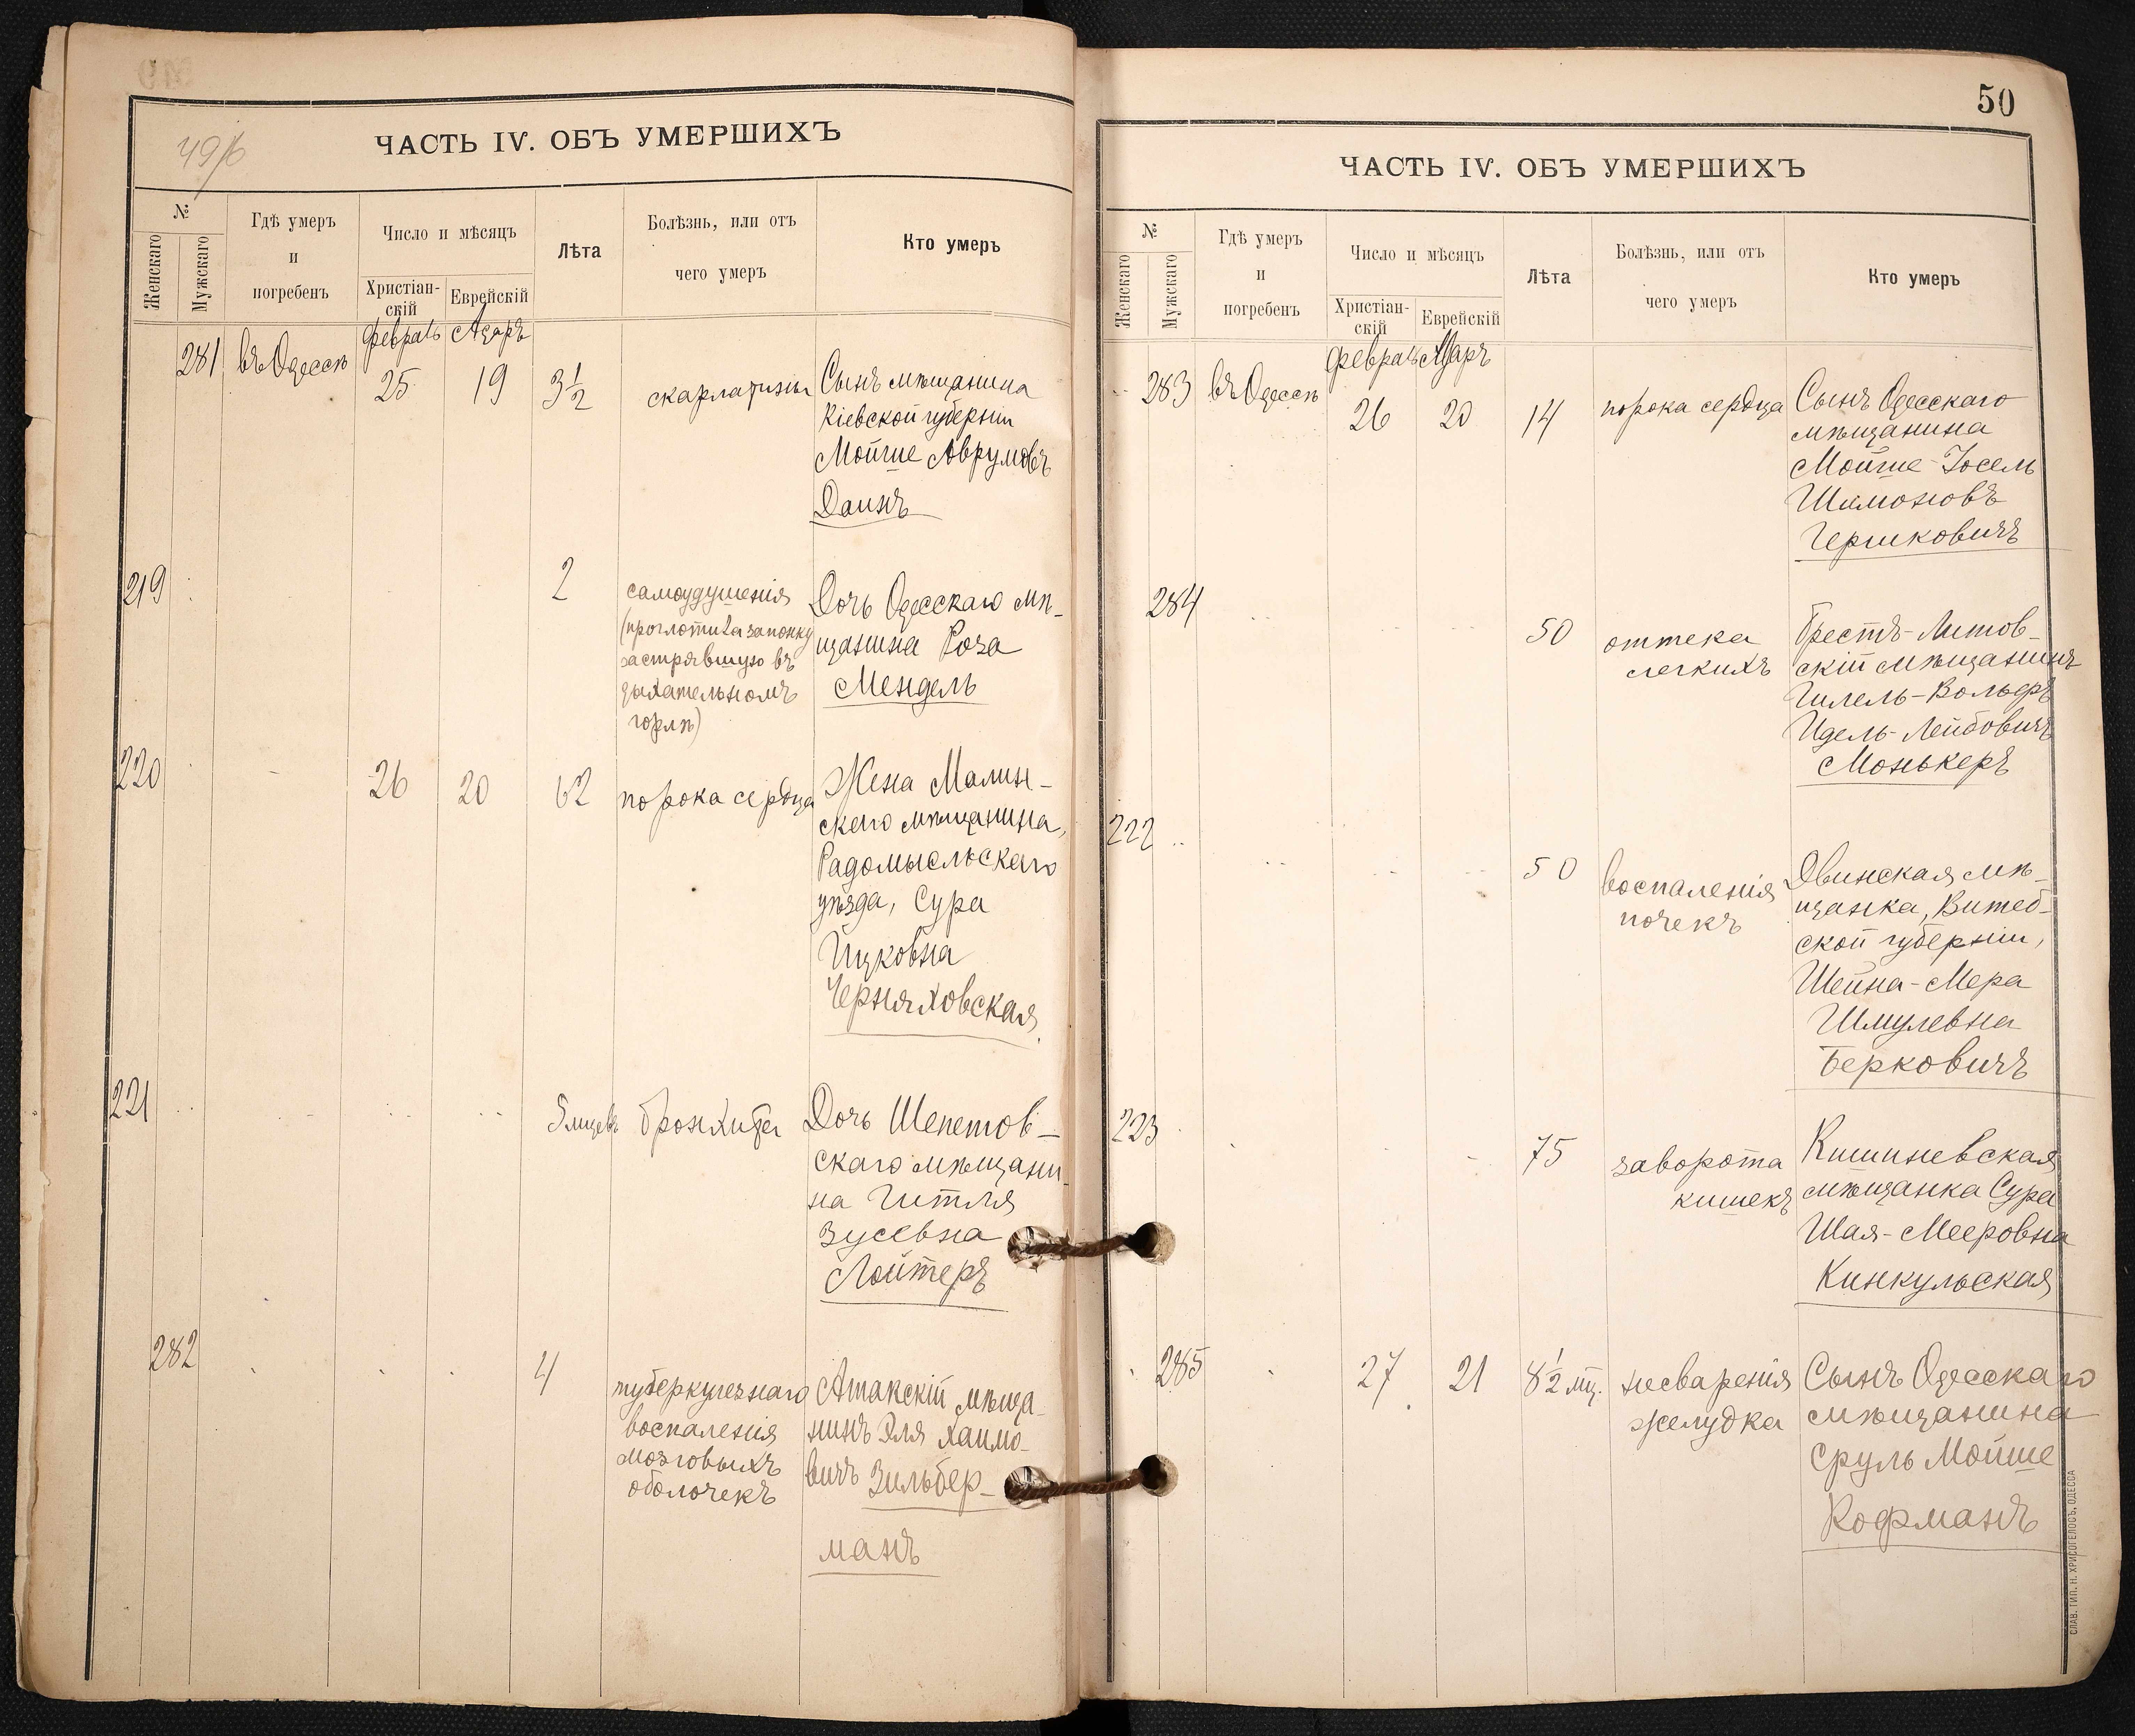 49/б
ЧАСТЬ IV. ОБЪ УМЕРШИХЪ
№
Женскаго
Мужскаго
Гдѣ умеръ
и
погребенъ
Число и мѣсяцъ
Христіан-
скій
Еврейскій
Лѣта
Болѣзнь, или отъ
чего умеръ
Кто умеръ
февраль Адаръ
281 въ Одессѣ 25 19 3½ скарлатины Сынъ мѣщанина
Кіевской губерніи
Мойше Аврумовъ
Даинъ
219 2 самоудушенія Дочь Одесскаго мѣ-
(проглотила запонку щанина Роза
застрявшую въ Мендель
дыхательномъ
горлѣ)
220 26 20 62 порока сердца Жена Малин-
скаго мѣщанина,
Радомысльскаго
уѣзда, Сура
Ицковна
Черняховская
221 5 мцевъ бронхита Дочь Шепетов-
скаго мѣщани-
на Гитля
Зусевна
Лойтеръ
282 4 туберкулезнаго Атакскій мѣща-
воспаленія нинъ Эля Хаимо-
мозговыхъ вичъ Зильбер-
оболочекъ
манъ
50
ЧАСТЬ IV. ОБЪ УМЕРШИХЪ
№
Женскаго
Мужскаго
Гдѣ умеръ
и
погребенъ
Число и мѣсяцъ
Христіан-
скій
Еврейскій
Лѣта
Болѣзнь, или отъ
чего умеръ
Кто умеръ
февраль Адаръ
283 въ Одессѣ 26 20 14 порока сердца Сынъ Одесскаго
мѣщанина
Мойше-Іосель
Шимоновъ
Гершковичъ
284 50 оттека Брестъ-Литов-
легкихъ скій мѣщанинъ
Гилель-Вольфъ
Идель-Лейбовичъ
Монькеръ
222 50 воспаленія Двинская мѣ-
почекъ щанка, Витеб-
ской губерніи,
Шейна-Мера
Шмулевна
Берковичъ
223 75 заворота Кишиневская
кишекъ мѣщанка Сура
Шая-Мееровна
Кинкульская
285 27 21 8½ мц. несваренія Сынъ Одесскаго
желудка мѣщанина
Сруль Мойше
Кофманъ
СЛАВ. ТИП. Н. ХРИСОГЕЛОСЪ, ОДЕССА